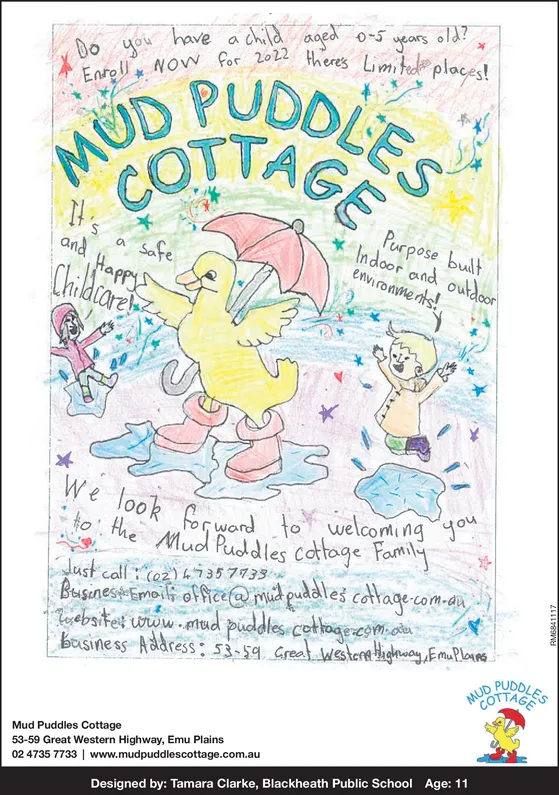 Do you have a child aged 0-5 years old?
Enroll NOW for 2022 theres Limited places!
MUD PUDDLES
COTTAGE
It's
a safe
and Happy
Childcare!
Purpose built
Indoor and outdoor
environments!
We look forward to welcoming you
to the Mud Puddles cottage Family
Just call: (02) 4735 7733
Busines Email: office@mudpuddles cottage.com.au
Website: www.mud puddles cottage.com.au
Business Address: 53-59 Great Western Highway, Emu Plains
RM6841117
MUD PUDDLES
COTTAGE
Mud Puddles Cottage
53-59 Great Western Highway, Emu Plains
02 4735 7733 | www.mudpuddlescottage.com.au
Designed by: Tamara Clarke, Blackheath Public School Age: 11